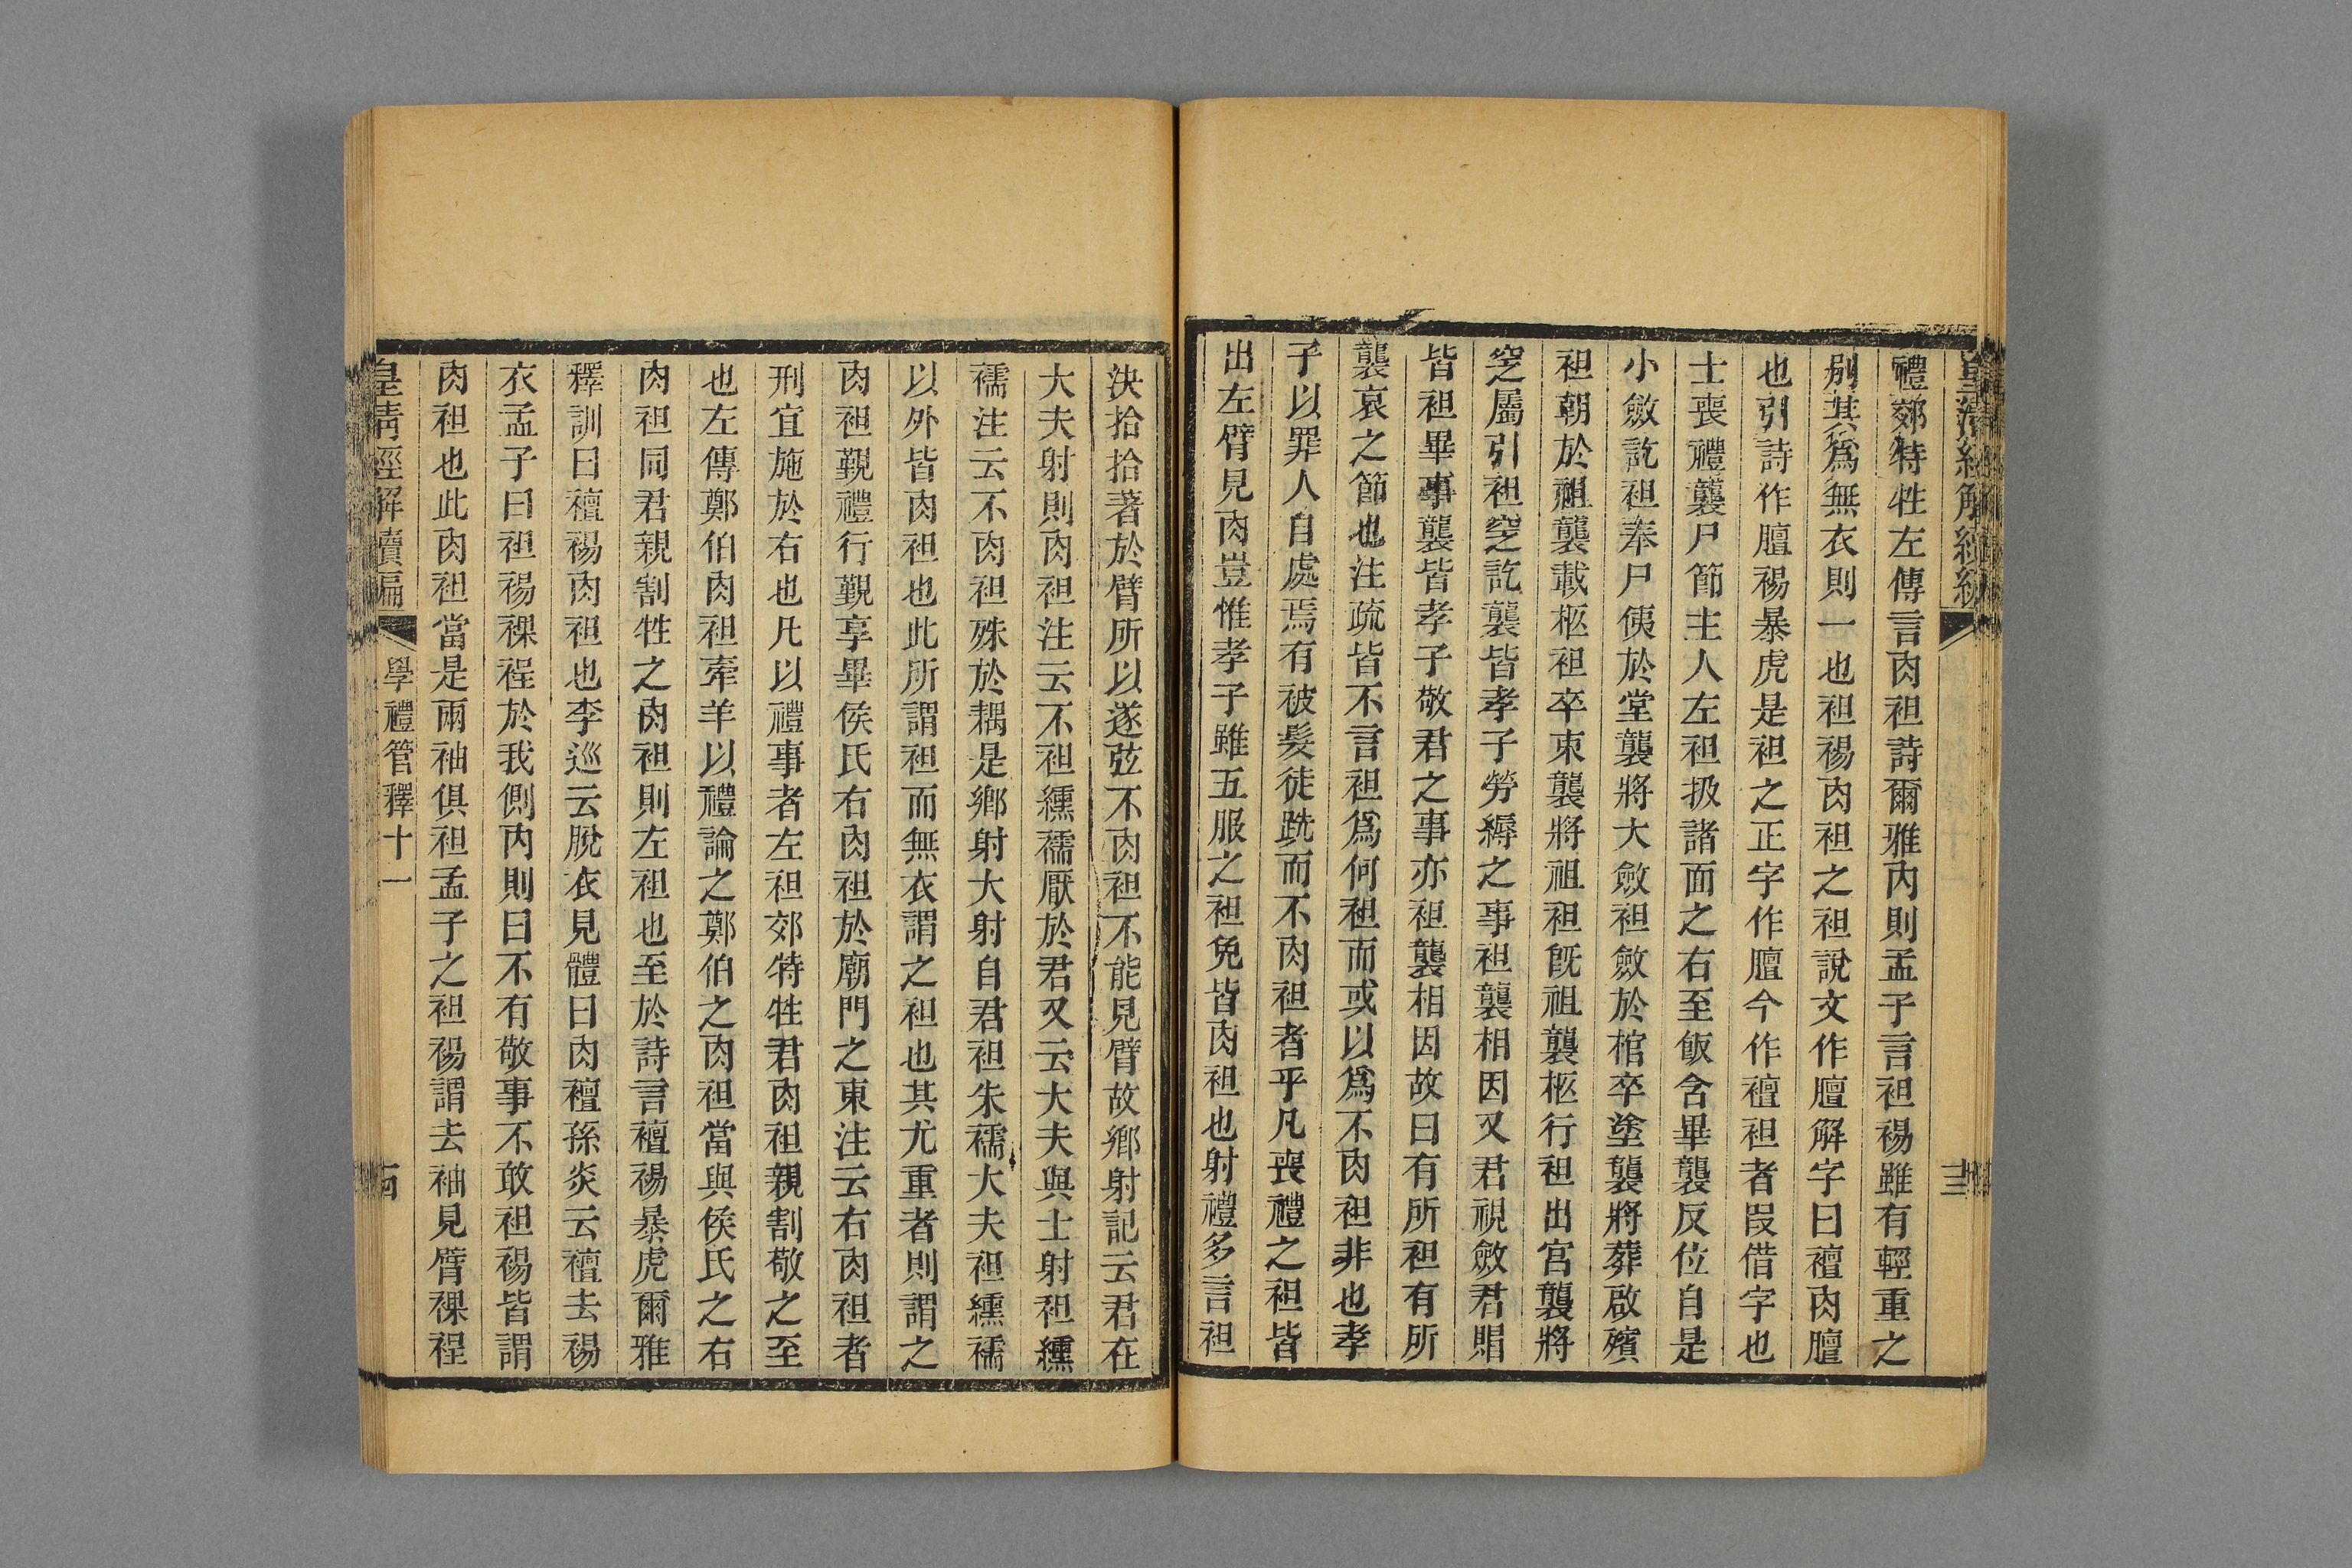 禮郊特牲左傳言肉袒詩爾雅內則孟子言袒裼雖有輕重之
別其爲無衣則一也袒裼肉袒之袒說文作膻解字曰襢肉膻
也引詩作膻裼暴虎是袒之正字作膻今作襢袒者叚借字也
士喪禮襲尸節主人左袒扱諸面之右至飯含畢襲反位自是
小斂訖袒奉尸侇於堂襲將大斂袒斂於棺卒塗襲將葬啟殯
袒朝於祖襲載柩袒卒束襲將祖袒旣祖襲柩行袒出宮襲將
窆屬引袒窆訖襲皆孝子勞縟之事袒襲相因又君視斂君賵
皆袒畢事襲皆孝子敬君之事亦袒襲相因故曰有所袒有所
襲哀之節也注疏皆不言袒爲何袒而或以爲不肉袒非也孝
子以罪人自處焉有被髮徒跣而不肉袒者乎凡喪禮之袒皆
出左臂見肉豈惟孝子雖五服之袒免皆肉袒也射禮多言袒
決拾拾著於臂所以遂弦不肉袒不能見臂故鄉射記云君在
大夫射則肉袒注云不袒纁襦厭於君又云大夫與士射袒纁
襦注云不肉袒殊於耦是鄉射大射自君袒朱襦大夫袒纁襦
以外皆肉袒也此所謂袒而無衣謂之袒也其尤重者則謂之
肉袒覲禮行覲享畢侯氏右肉袒於廟門之東注云右肉袒者
刑宜施於右也凡以禮事者左袒郊特牲君肉袒親割敬之至
也左傳鄭伯肉袒牽羊以禮論之鄭伯之肉袒當與侯氏之右
肉袒同君親割牲之肉袒則左袒也至於詩言襢裼暴虎爾雅
釋訓曰襢裼肉袒也李巡云脫衣見體曰肉襢孫炎云襢去裼
衣孟子曰袒裼裸裎於我側內則曰不有敬事不敢袒裼皆謂
肉袒也此肉袒當是兩袖俱袒孟子之袒裼謂去袖見臂裸裎
皇清經解續編
學禮管釋十一